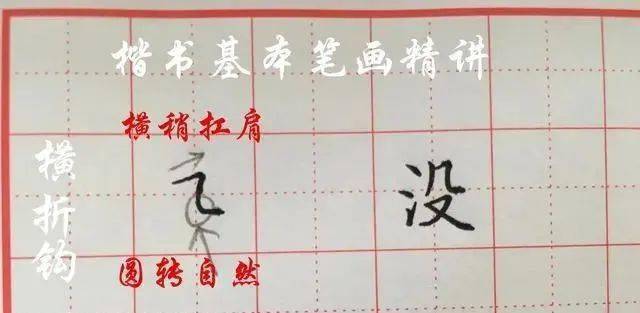 楷书基本笔画精讲
横稍扛肩
横折钩
没
圆转自然